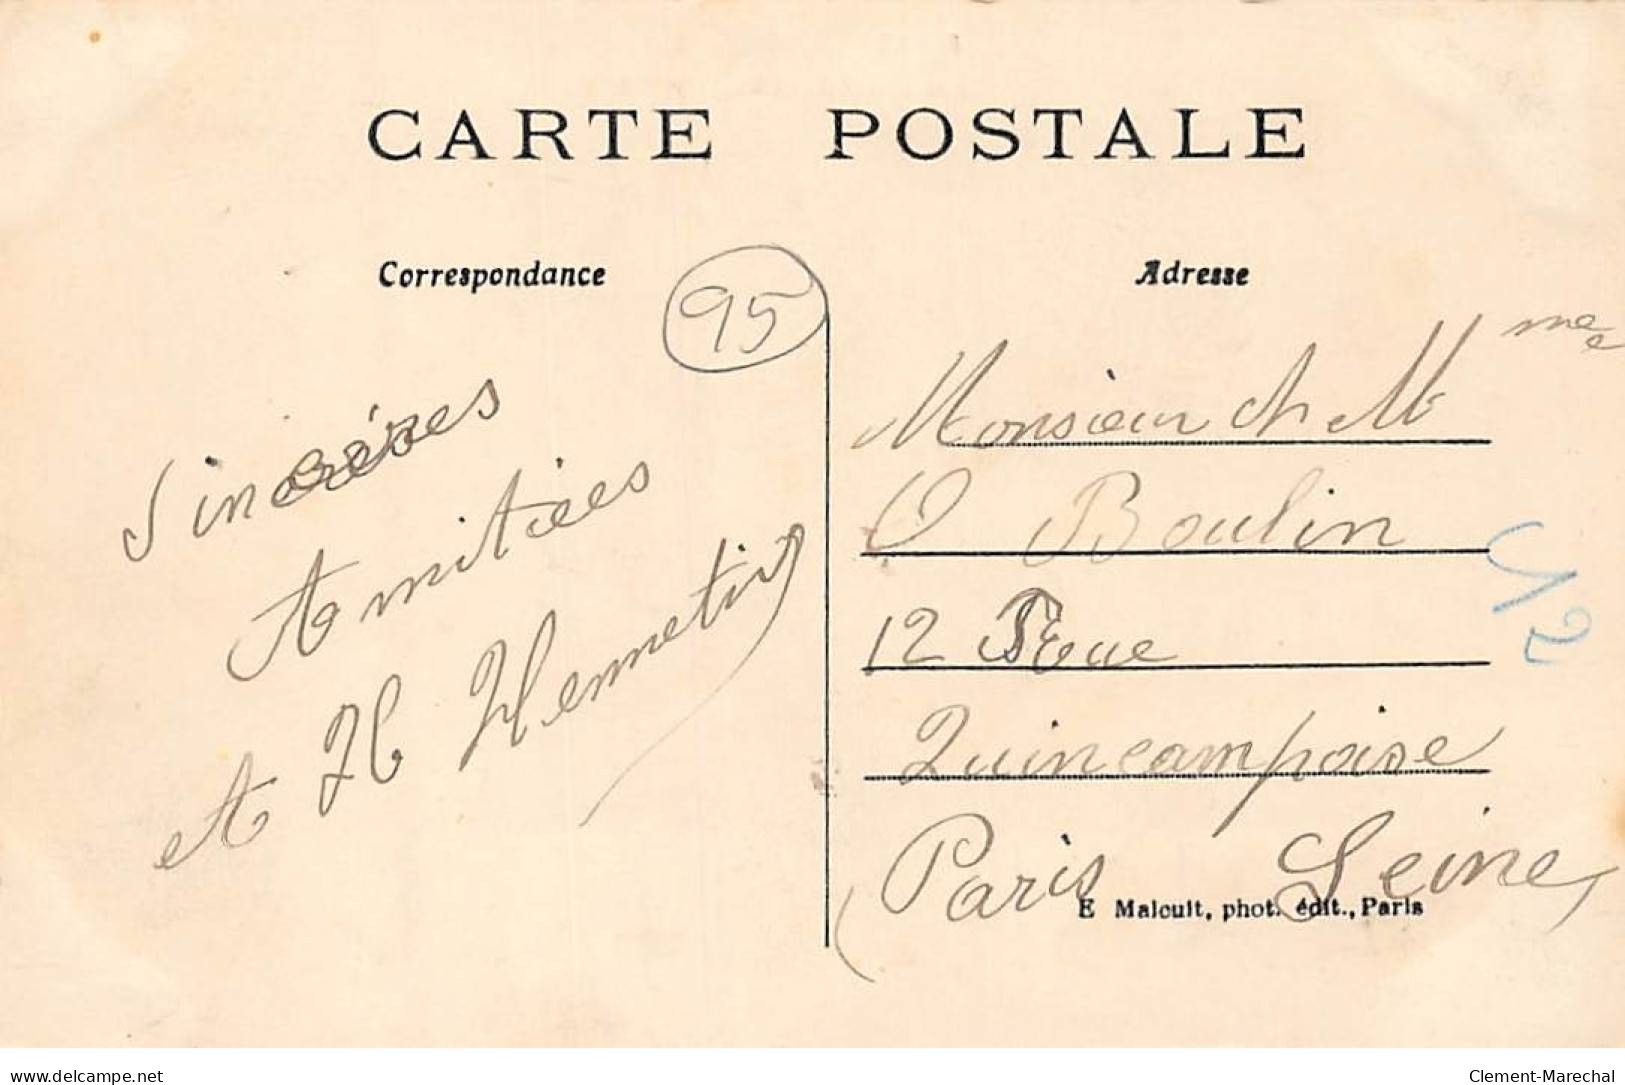 CARTE POSTALE
Correspondance
95
Sincères
Amitiées
et H
Adresse
Monsieur et Mme
Boulin
12 Rue
Quincampoise
Paris Seine
12
E Malcuit, phot. édit., Paris
delcampe.net
Clement-Marechal